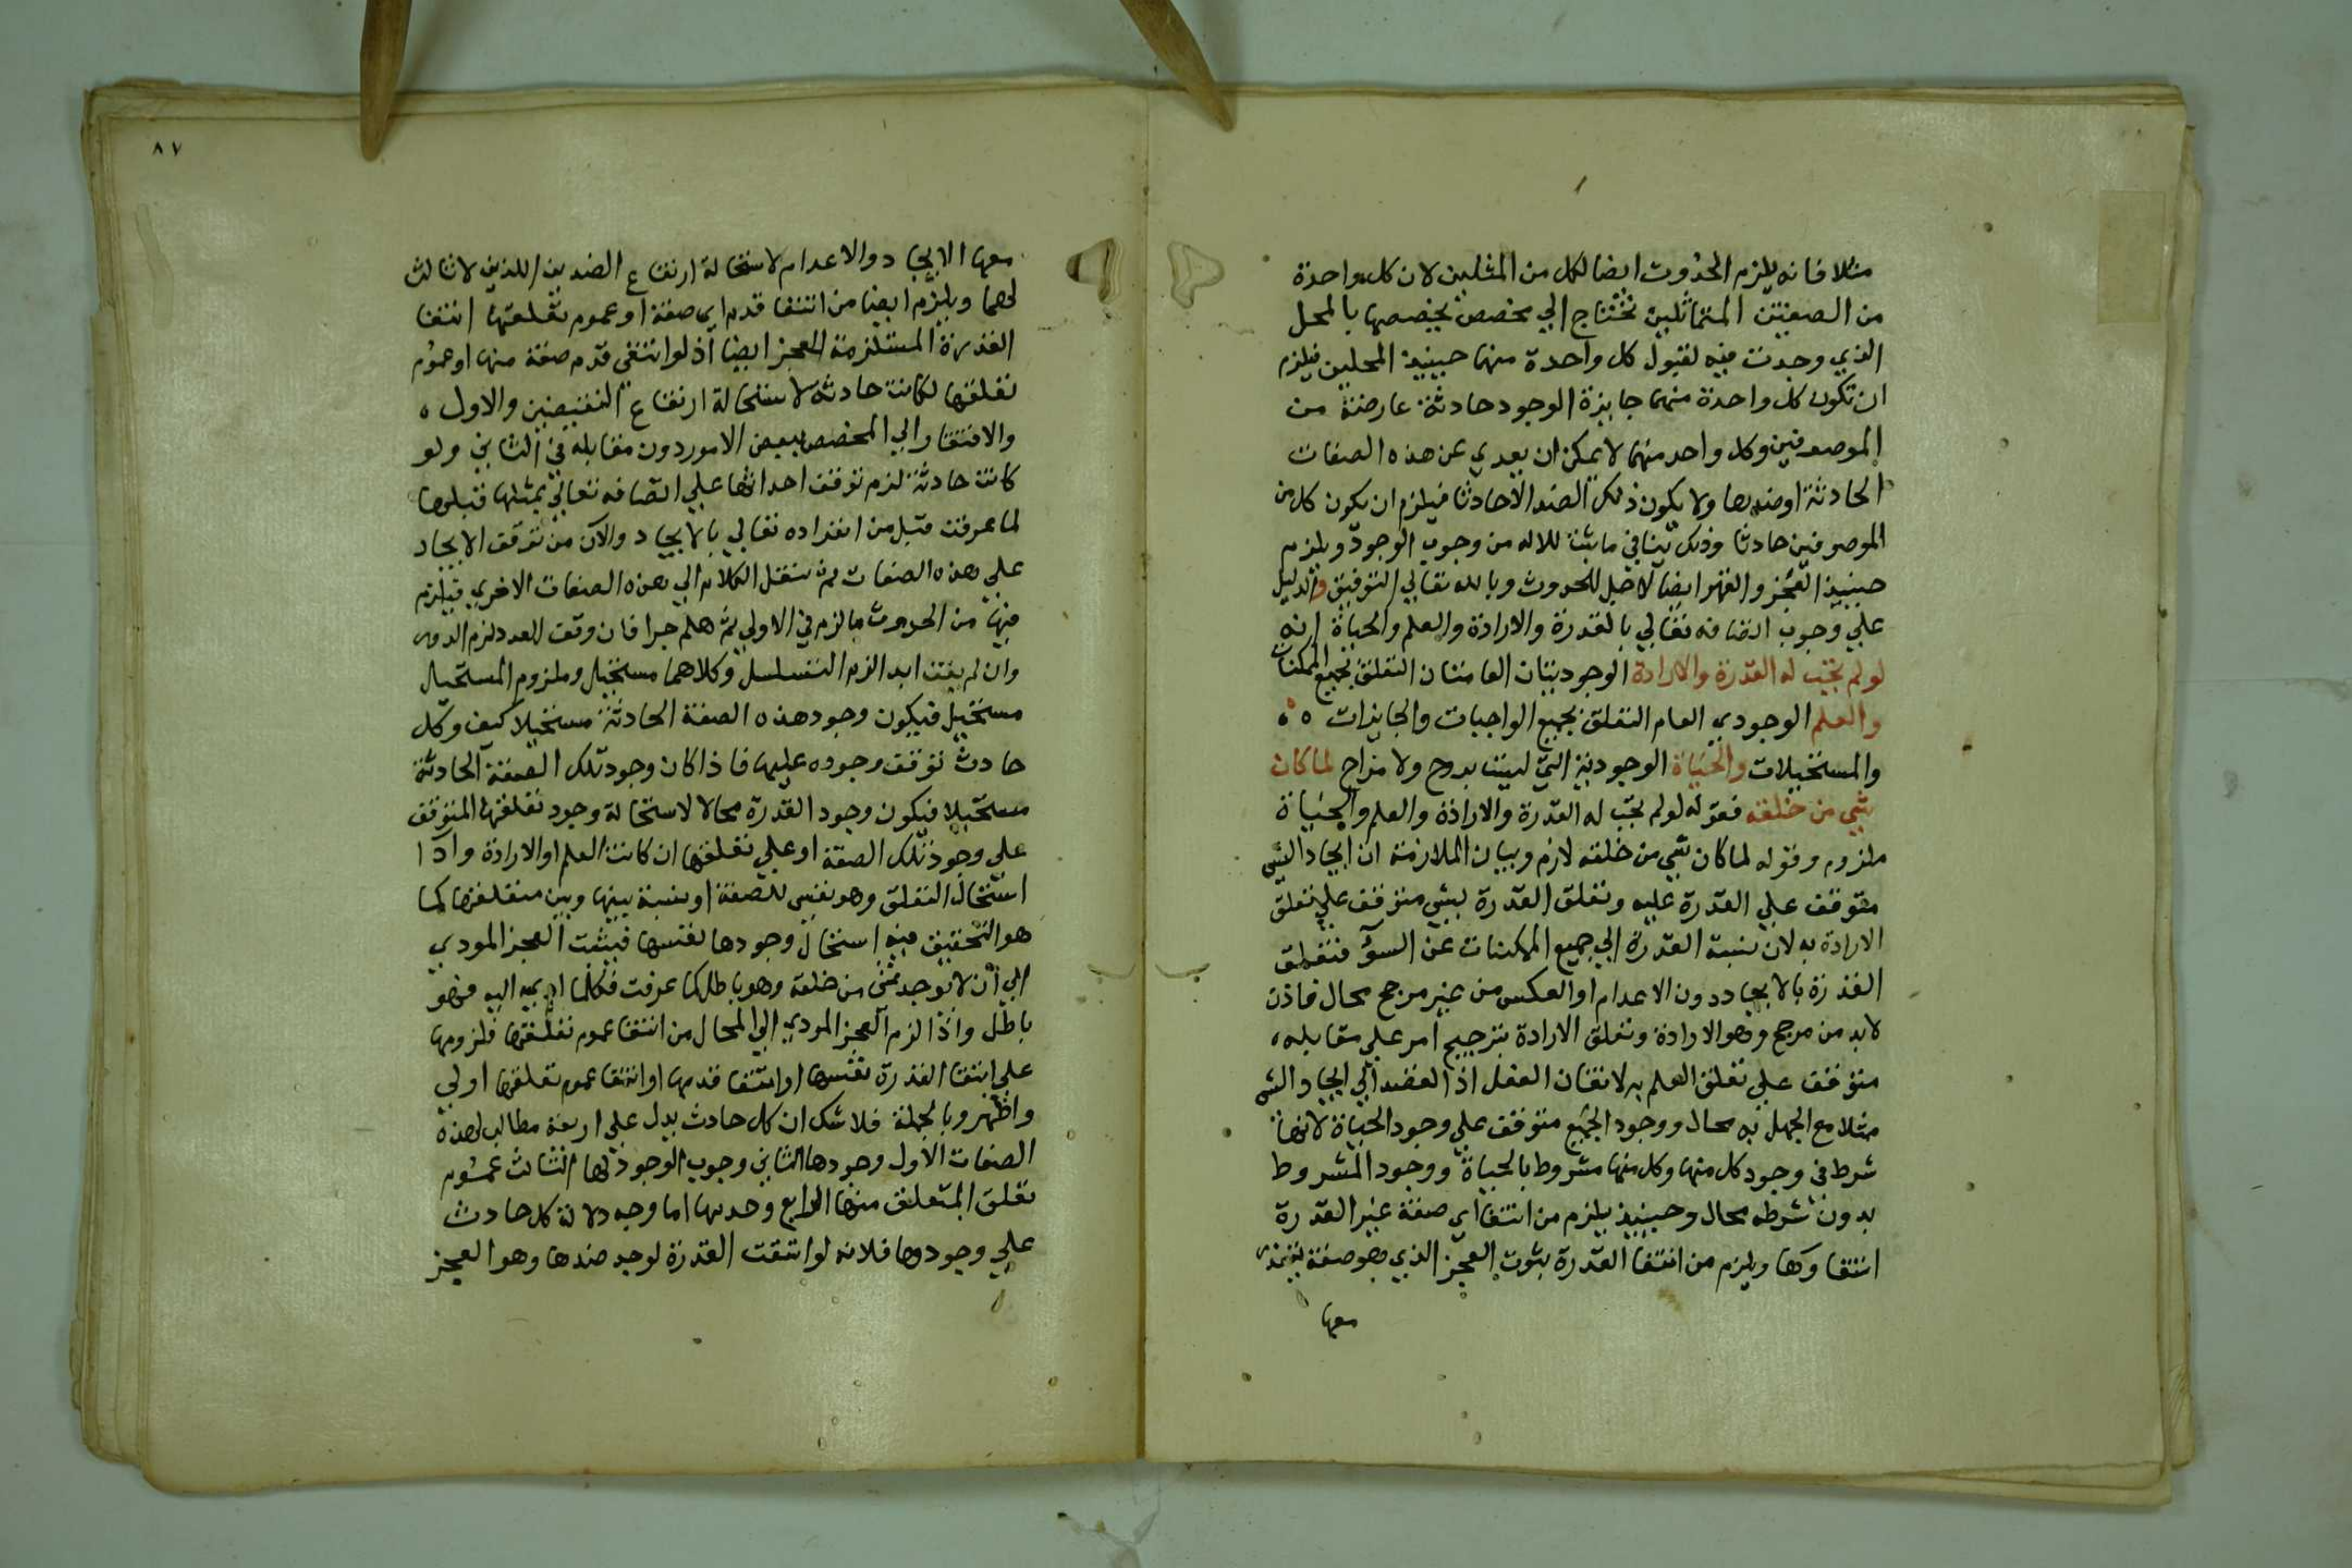 مثلا فانه يلزم الحدوث ايضا لكل من المثلين لان كل واحدة
من الصفتين المتماثلين تحتاج الي مخصص يخصصها بالمحل
الذي وجدت فيه لقبول كل واحدة منهما حينيذ المحلين فيلزم
ان تكون كل واحدة منهما جايزة الوجود حادثة عارضة من
الموصوفين وكل واحد منهما لا يمكن ان يعري عن هذه الصفات
الحادثة او ضدها ولا يكون ذلك الضد الا حادثا فيلزم ان يكون كل من
الموصوفين حادثا وذلك ينافي ما ثبت للاله من وجوب الوجود ويلزم
حينيذ العجز والقهر ايضا لاجل الحدوث وبالله تعالي التوفيق والدليل
علي وجوب اتصافه تعالي بالقدرة والارادة والعلم والحياة انه
لو لم تجب له القدرة والارادة الوجوديتان العامتان التعلق بجميع الممكنات
والعلم الوجودي العام التعلق بجميع الواجبات والجايزات
والمستحيلات والحياة الوجودية التي ليست بروح ولا مزاج لما كان
شي من خلقه فقوله لو لم تجب له القدرة والارادة والعلم والحياة
ملزوم وقوله لما كان شي من خلقه لازم وبيان الملازمة ان ايجاد الشي
متوقف علي القدرة عليه وتعلق القدرة بشي متوقف علي تعلق
الارادة به لان نسبة القدرة الي جميع الممكنات عن السوآ فتعلق
القدرة بالايجاد دون الاعدام او العكس من غير مرجح محال فاذن
لا بد من مرجح وهو الارادة وتعلق الارادة بترجيح امر علي مقابله
متوقف علي تعلق العلم به لاتقان الفعل اذ القصد الي ايجاد الشي
مثلا مع الجهل به محال ووجود الجميع متوقف علي وجود الحياة لانها
شرط في وجود كل منها وكل منها مشروط بالحياة ووجود المشروط
بدون شرطه محال وحينيذ يلزم من انتفا اي صفة غير القدرة
انتفاوها ويلزم من انتفا القدرة ثبوت العجز الذي هو صفة يتعذر
معها
٨٧
معها الايجاد والاعدام لاستحالة ارتفاع الضدين اللذين لا ثالث
لهما ويلزم ايضا من انتفا قدم اي صفة او عموم تعلقها انتفا
القدرة المستلزمة للعجز ايضا اذ لو انتفي قدم صفة منها او عموم
تعلقها لكانت حادثة لاستحالة ارتفاع النقيضين والاول
والافتقار الي المخصص ببعض الامور دون مقابله في الثاني ولو
كانت حادثة لزم توقف احداثها علي اتصافه تعالي بمثلها قبلها
لما عرفت قبل من انفراده تعالي بالايجاد والآن من توقف الايجاد
علي هذه الصفات ثم ننقل الكلام الي هذه الصفات الاخري فيلزم
فيها من الحدوث ما لزم في الاولي ثم هلم جرا فان وقف العدد لزم الدور
وان لم يقف ابدا لزم التسلسل وكلاهما مستحيل وملزوم المستحيل
مستحيل فيكون وجود هذه الصفة الحادثة مستحيلا كيف وكل
حادث توقف وجوده عليها فاذا كان وجود تلك الصفة الحادثة
مستحيلا فيكون وجود القدرة محالا لاستحالة وجود تعلقها المتوقف
علي وجود تلك الصفة او علي تعلقها ان كانت العلم او الارادة واذا
استحال التعلق وهو نفسي للصفة او نسبة بينها وبين متعلقها كما
هو التحقيق فيه استحال وجودها لنفسها فيثبت العجز المودي
الي ان لا يوجد شي من خلقه وهو باطل كما عرفت فكلما ادي اليه فهو
باطل واذا لزم العجز المودي الي المحال من انتفا عموم تعلقها فلزومها
علي انتفا القدرة نفسها او انتفا قدمها او انتفا عموم تعلقها اولي
واظهر وبالجملة فلا شك ان كل حادث يدل علي اربعة مطالب لهذه
الصفات الاول وجودها الثاني وجوب الوجود لها الثالث عموم
تعلق المتعلق منها الرابع وحدتها اما وجه دلالة كل حادث
علي وجودها فلانه لو انتفت القدرة لوجد ضدها وهو العجز